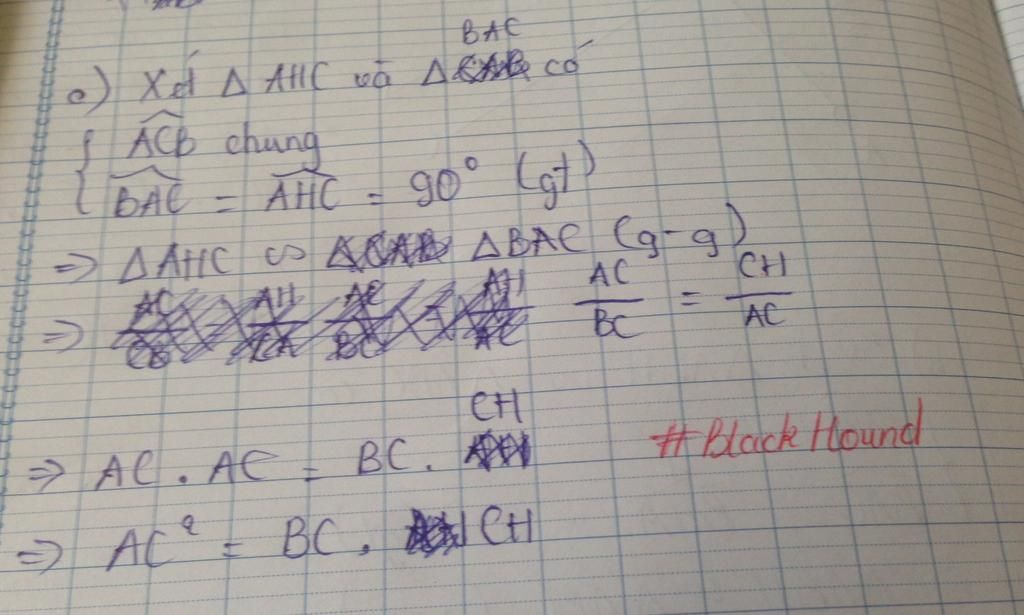 a) Xét Δ AHC và Δ BAC có
{ ACB chung
{ BAC = AHC = 90° (gt)
=> ΔAHC ∽ ΔBAC (g-g)
=> AC/BC = CH/AC
=> AC . AC = BC . CH
#BlackHound
=> AC² = BC . CH